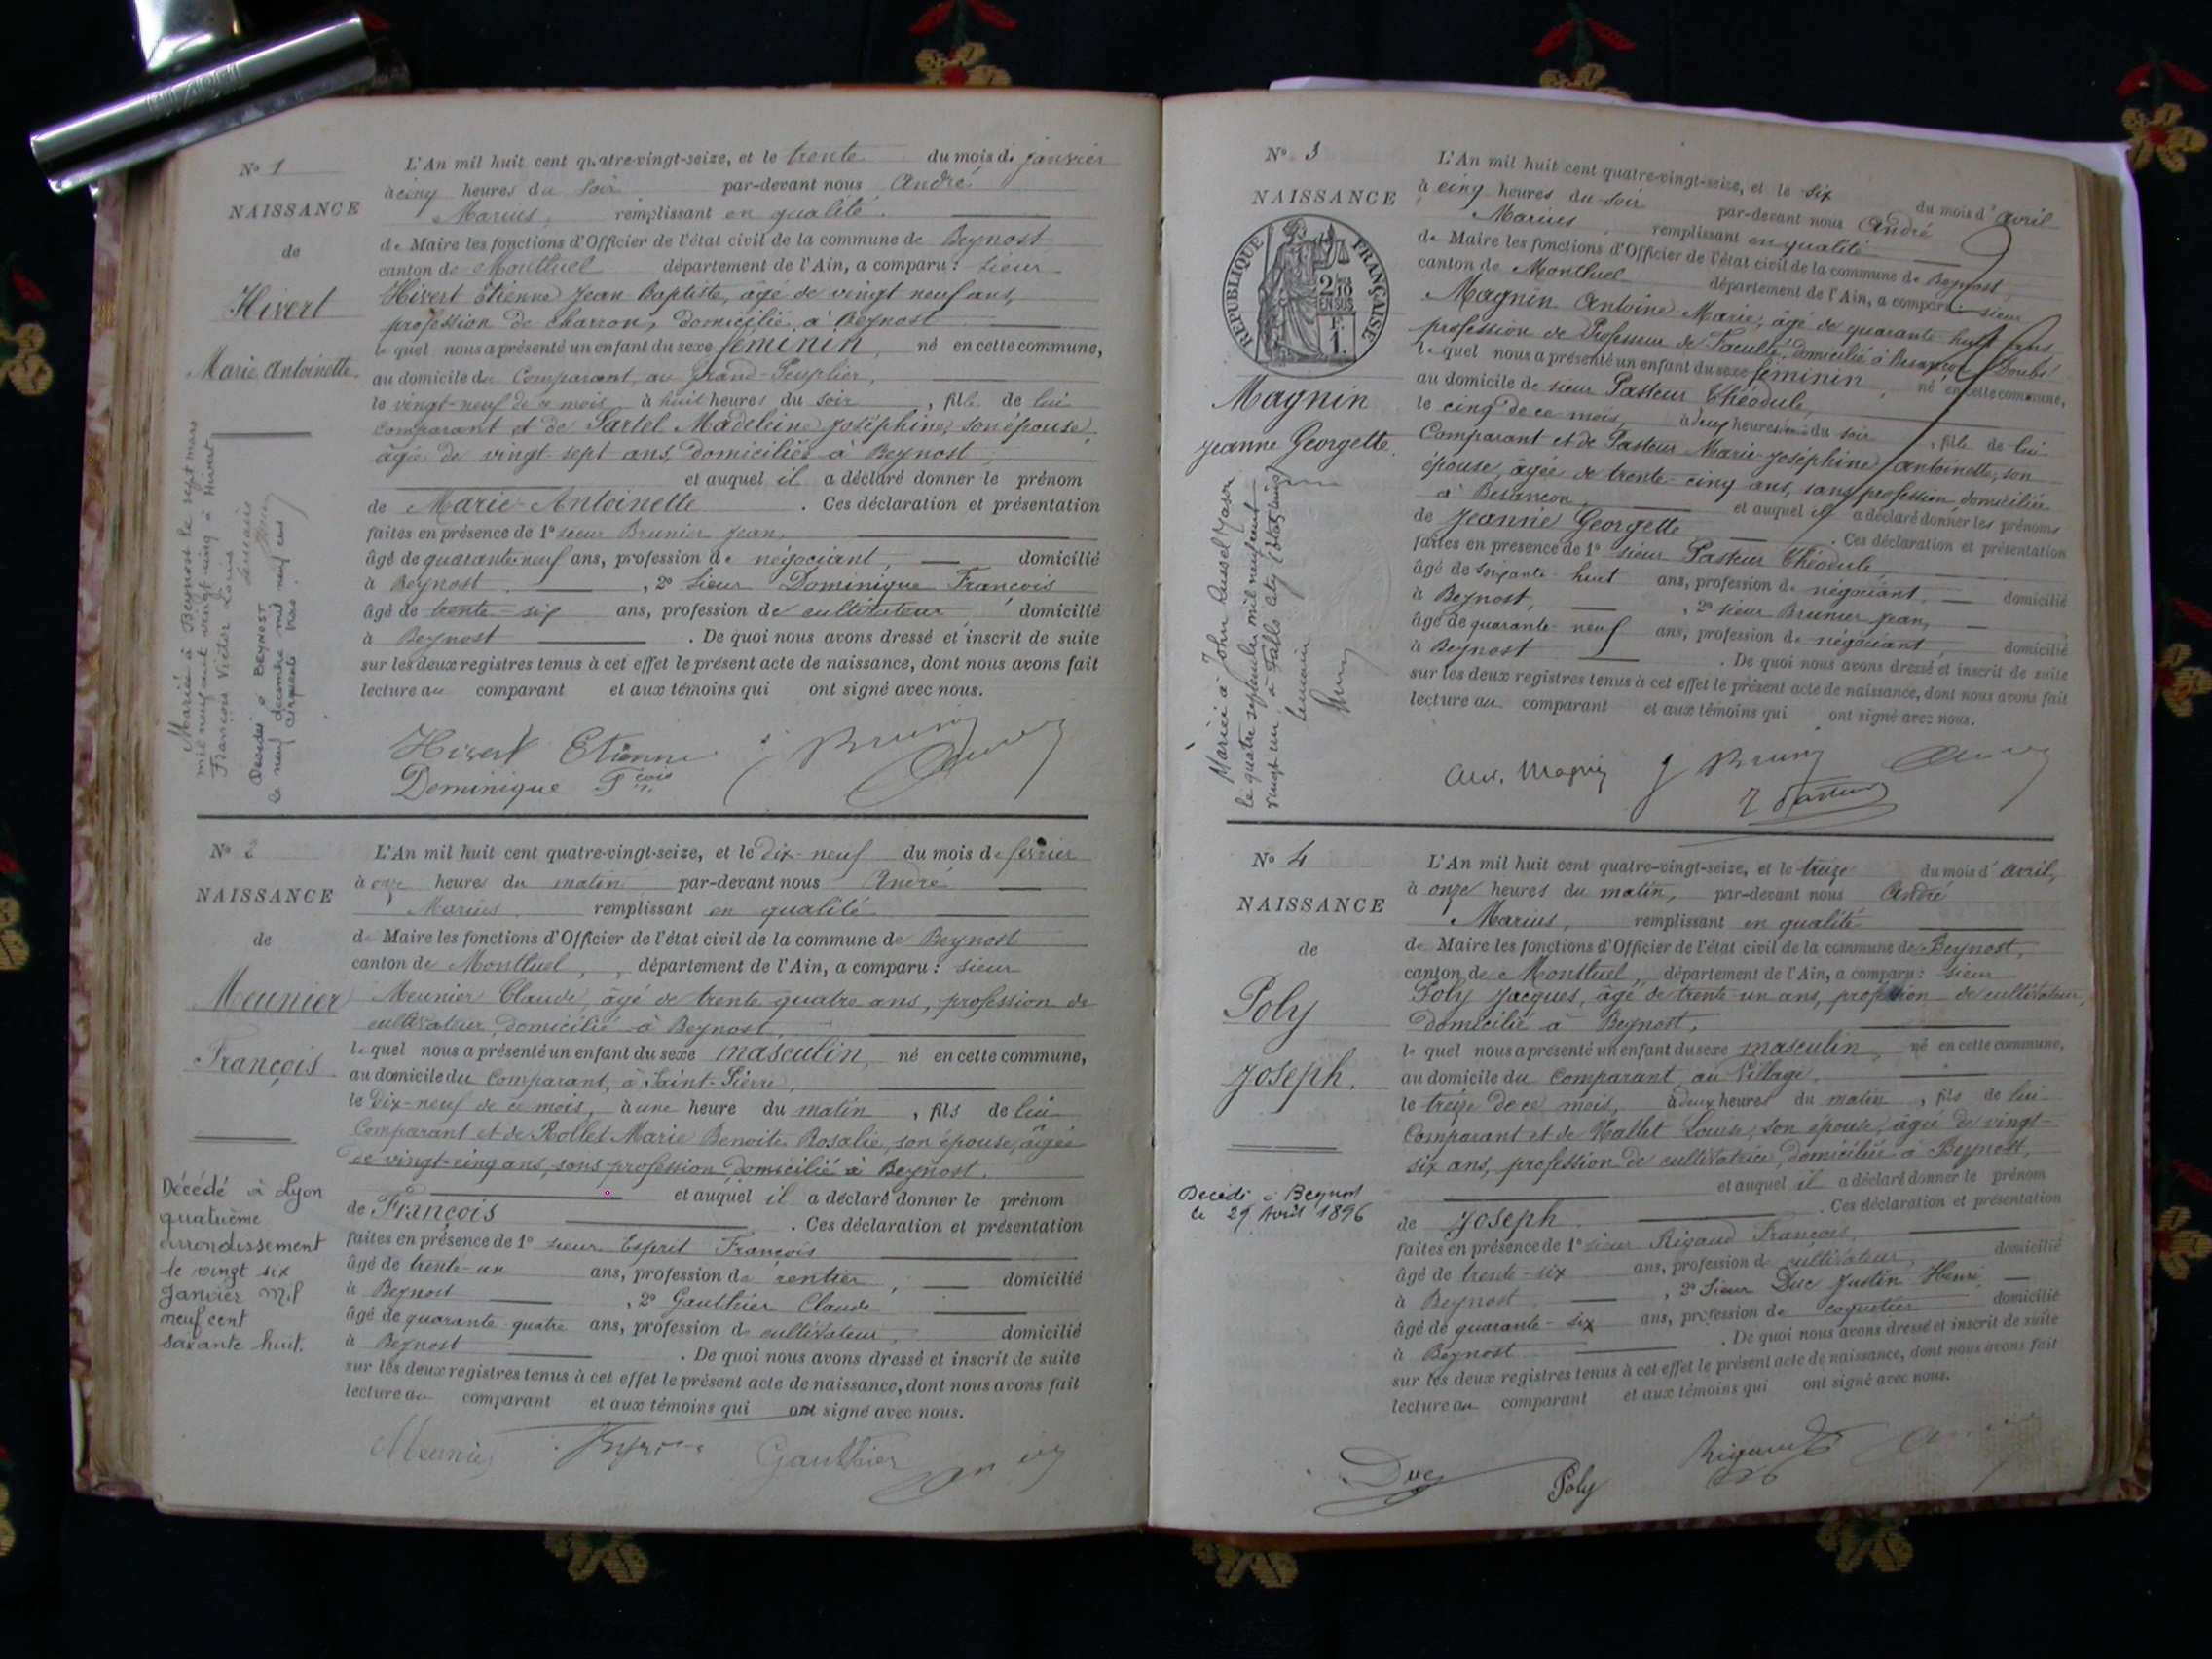 N° 1
NAISSANCE
de
Hivert
Marie Antoinette.
Mariée à Beynost le sept mars
mil neuf cent vingt-cinq à Hivert
François Victor
Décédée à BEYNOST
le neuf décembre mil neuf cent
cinquante trois.
L'An mil huit cent quatre-vingt-seize, et le trente du mois de janvier
à cinq heures du soir par-devant nous André
Marius, remplissant en qualité
de Maire les fonctions d'Officier de l'état civil de la commune de Beynost
canton de Montluel département de l'Ain, a comparu : sieur
Hivert Etienne Jean Baptiste, âgé de vingt neuf ans,
profession de charron, domicilié à Beynost
le quel nous a présenté un enfant du sexe féminin, né en cette commune,
au domicile du Comparant, au Grand-Peuplier,
le vingt-neuf de ce mois, à huit heures du soir, fille de lui
comparant et de Sartel Madeleine Joséphine, son épouse,
âgée de vingt-sept ans, domiciliée à Beynost,
et auquel il a déclaré donner le prénom
de Marie-Antoinette. Ces déclaration et présentation
faites en présence de 1° sieur Brunier Jean,
âgé de quarante-neuf ans, profession de négociant, domicilié
à Beynost, 2° Sieur Dominique François
âgé de trente-six ans, profession de cultivateur, domicilié
à Beynost. De quoi nous avons dressé et inscrit de suite
sur les deux registres tenus à cet effet le présent acte de naissance, dont nous avons fait
lecture au comparant et aux témoins qui ont signé avec nous.
Hivert Etienne J Brunier
Dominique Fçois
N° 2
NAISSANCE
de
Meunier
François
Décédé à Lyon
quatrième
arrondissement
le vingt six
Janvier mil
neuf cent
soixante huit.
L'An mil huit cent quatre-vingt-seize, et le dix-neuf du mois de février
à onze heures du matin par-devant nous André
Marius, remplissant en qualité
de Maire les fonctions d'Officier de l'état civil de la commune de Beynost
canton de Montluel, département de l'Ain, a comparu : sieur
Meunier Claude, âgé de trente quatre ans, profession de
cultivateur, domicilié à Beynost,
le quel nous a présenté un enfant du sexe masculin, né en cette commune,
au domicile du Comparant, à Saint-Pierre,
le dix-neuf de ce mois, à une heure du matin, fils de lui
Comparant et de Rollet Marie Benoite Rosalie, son épouse, âgée
de vingt-cinq ans, sans profession, domicilié à Beynost.
et auquel il a déclaré donner le prénom
de François. Ces déclaration et présentation
faites en présence de 1° sieur Esprit François
âgé de trente-un ans, profession de rentier, domicilié
à Beynost, 2° Gauthier Claude
âgé de quarante-quatre ans, profession de cultivateur, domicilié
à Beynost. De quoi nous avons dressé et inscrit de suite
sur les deux registres tenus à cet effet le présent acte de naissance, dont nous avons fait
lecture au comparant et aux témoins qui ont signé avec nous.
Meunier Gauthier
N° 3
NAISSANCE
REPUBLIQUE FRANÇAISE
2/10
EN SUS
1 F.
Magnin
Jeanne Georgette.
Mariée à John Russel Mason
le quatre septembre mil neuf cent
vingt un à Falls City (Etats Unis)
L'An mil huit cent quatre-vingt-seize, et le six du mois d'avril
à cinq heures du soir par-devant nous André
Marius, remplissant en qualité
de Maire les fonctions d'Officier de l'état civil de la commune de Beynost,
canton de Montluel département de l'Ain, a comparu : sieur
Magnin Antoine Marie, âgé de quarante huit ans
profession de Professeur de Faculté, domicilié à Besançon (Doubs)
le quel nous a présenté un enfant du sexe féminin, né en cette commune,
au domicile de sieur Pasteur Théodule,
le cinq de ce mois, à deux heures du soir, fille de lui
Comparant et de Pasteur Marie-Joséphine Antoinette, son
épouse, âgée de trente-cinq ans, sans profession, domiciliée
à Besançon, et auquel il a déclaré donner les prénoms
de Jeanne Georgette. Ces déclaration et présentation
faites en présence de 1° sieur Pasteur Théodule,
âgé de soixante-huit ans, profession de négociant, domicilié
à Beynost, 2° sieur Brunier Jean,
âgé de quarante-neuf ans, profession de négociant, domicilié
à Beynost. De quoi nous avons dressé et inscrit de suite
sur les deux registres tenus à cet effet le présent acte de naissance, dont nous avons fait
lecture au comparant et aux témoins qui ont signé avec nous.
Ant. Magnin J Brunier
T Pasteur
N° 4
NAISSANCE
de
Poly
Joseph.
Décédé à Beynost
le 29 Avril 1896
L'An mil huit cent quatre-vingt-seize, et le treize du mois d'avril,
à onze heures du matin, par-devant nous André
Marius, remplissant en qualité
de Maire les fonctions d'Officier de l'état civil de la commune de Beynost,
canton de Montluel, département de l'Ain, a comparu : sieur
Poly Jacques, âgé de trente-un ans, profession de cultivateur,
domicilié à Beynost,
le quel nous a présenté un enfant du sexe masculin, né en cette commune,
au domicile du Comparant, au Village,
le treize de ce mois, à deux heures du matin, fils de lui
Comparant et de Mallet Louise, son épouse, âgée de vingt-
six ans, profession de cultivatrice, domiciliée à Beynost,
et auquel il a déclaré donner le prénom
de Joseph. Ces déclaration et présentation
faites en présence de 1° sieur Rigaud François,
âgé de trente-six ans, profession de cultivateur, domicilié
à Beynost, 2° Sieur Duc Justin Henri,
âgé de quarante-six ans, profession de coquetier domicilié
à Beynost. De quoi nous avons dressé et inscrit de suite
sur les deux registres tenus à cet effet le présent acte de naissance, dont nous avons fait
lecture au comparant et aux témoins qui ont signé avec nous.
Duc Poly Rigaud